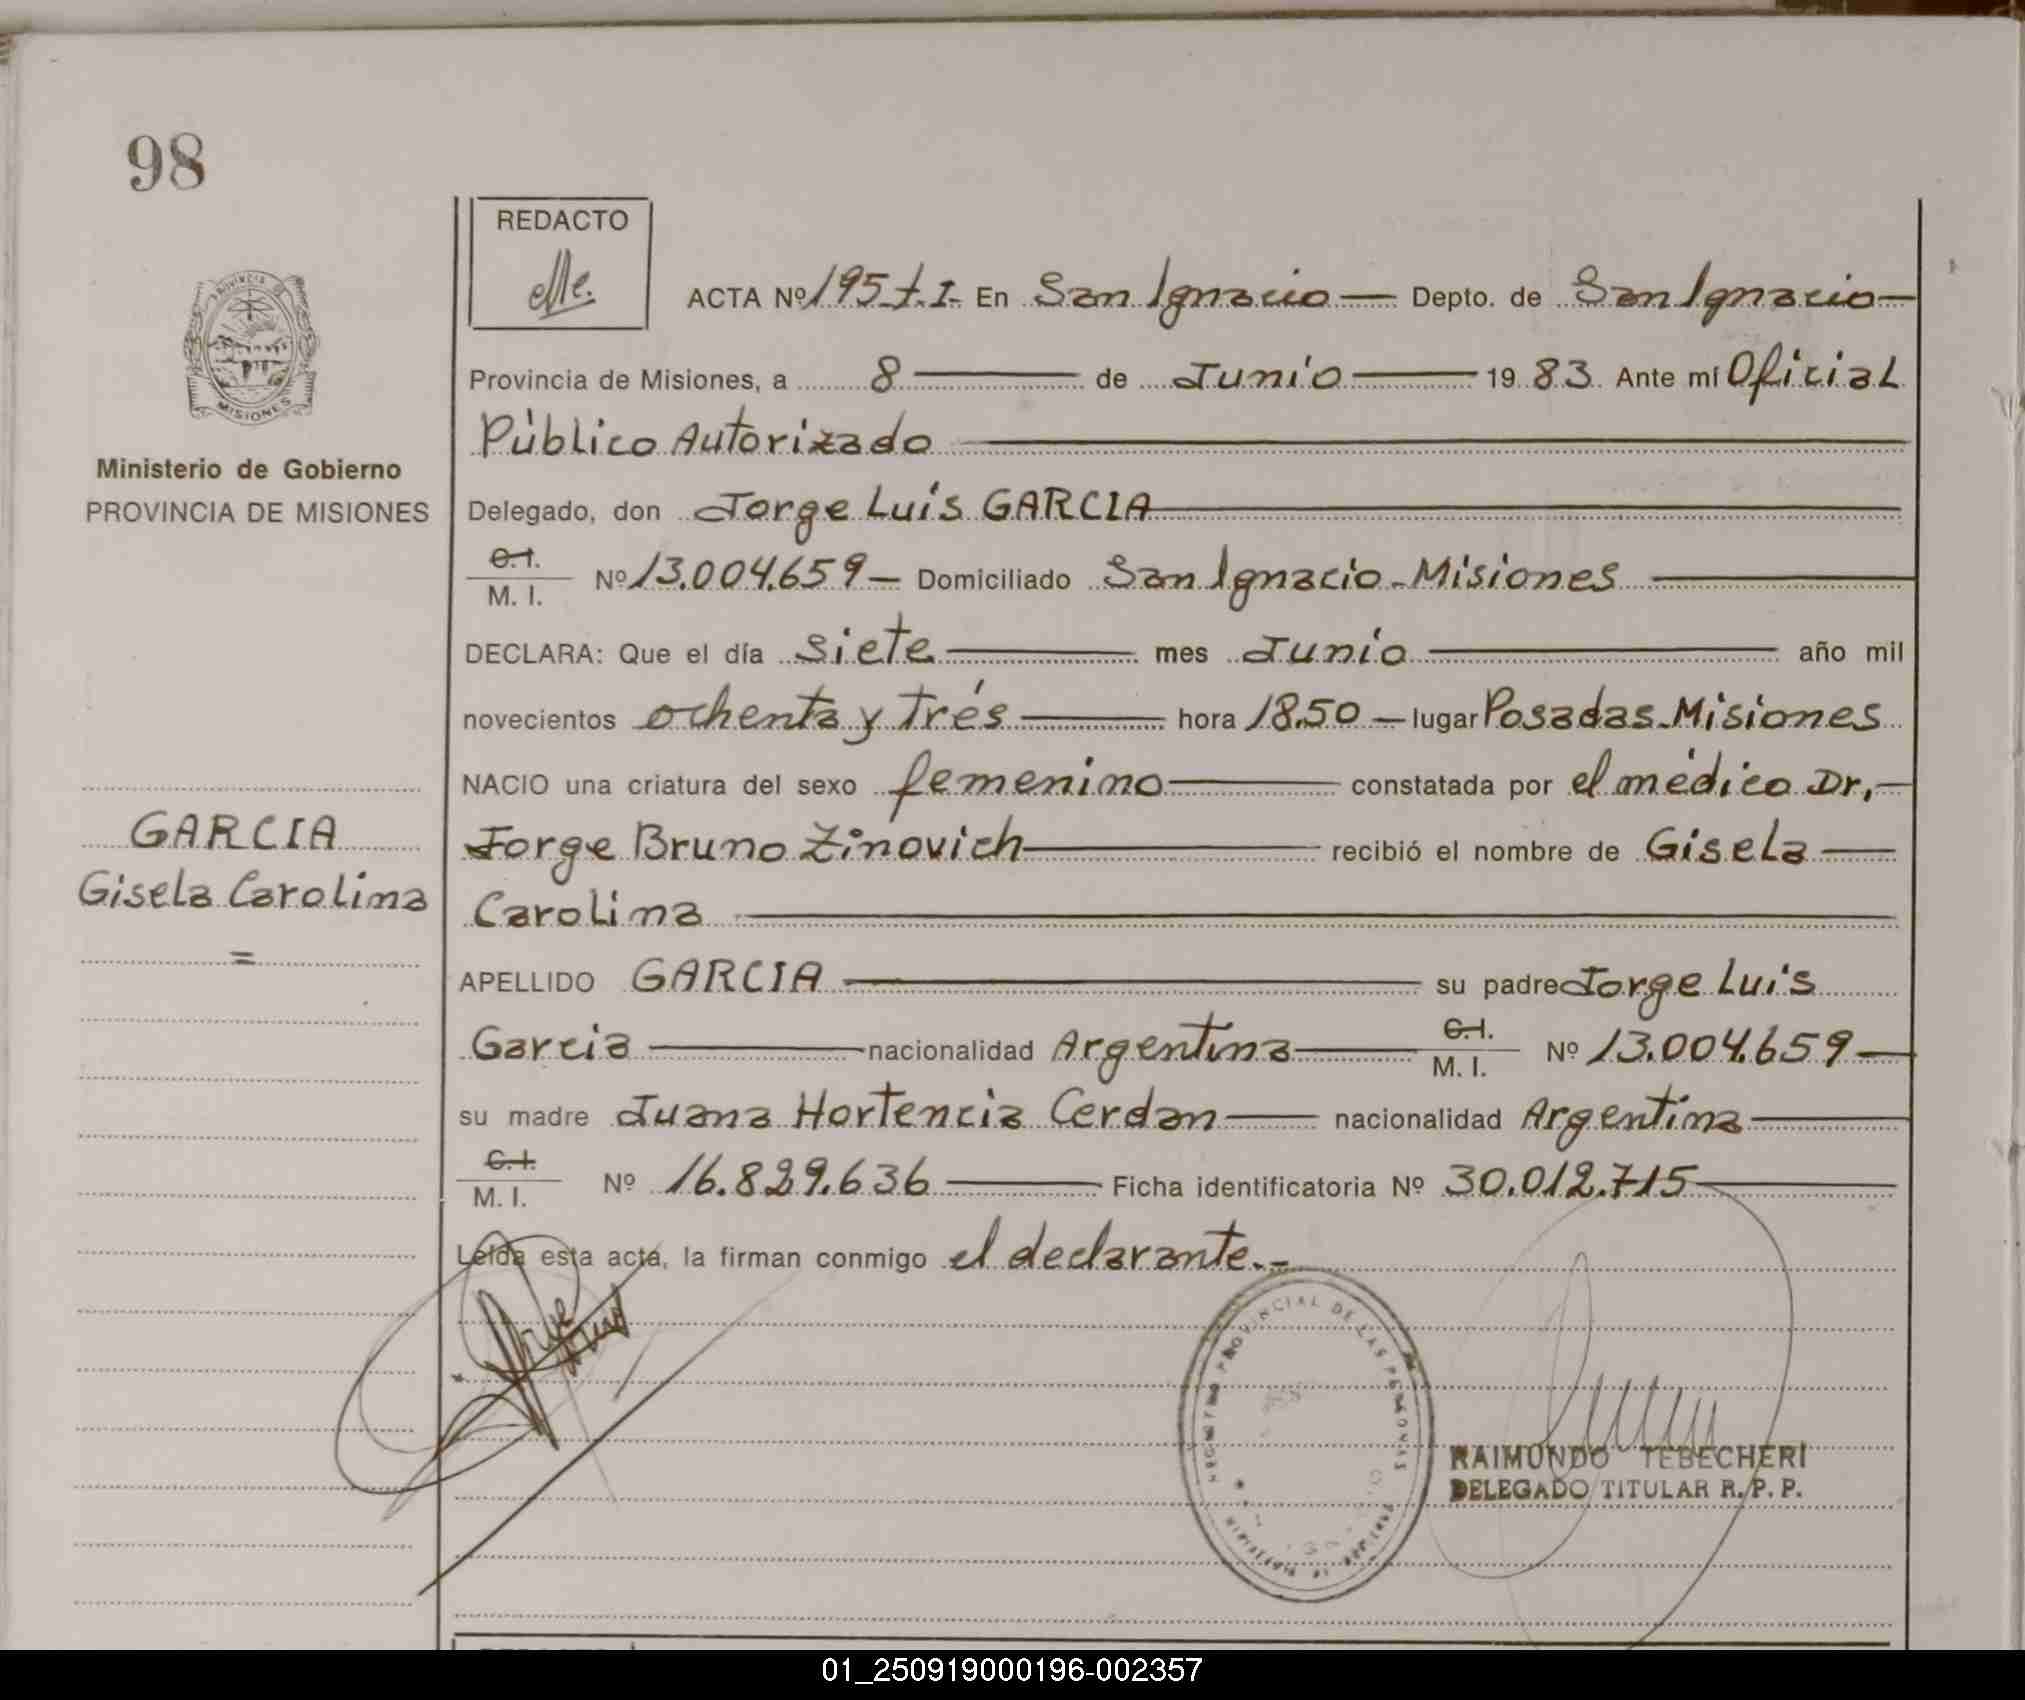 98
REDACTO
ACTA Nº 195 t. I. En San Ignacio — Depto. de San Ignacio —
PROVINCIA
MISIONES
Provincia de Misiones, a 8 — de Junio — 19 83. Ante mí Oficial
Público Autorizado
Ministerio de Gobierno
PROVINCIA DE MISIONES
Delegado, don Jorge Luis GARCIA
C.I.
M. I. Nº 13.004.659 — Domiciliado San Ignacio - Misiones
DECLARA: Que el día siete — mes Junio — año mil
novecientos ochenta y trés — hora 18.50 — lugar Posadas - Misiones
NACIO una criatura del sexo femenino — constatada por el médico Dr. —
Jorge Bruno Zinovich — recibió el nombre de Gisela —
Carolina
GARCIA
Gisela Carolina
=
APELLIDO GARCIA — su padre Jorge Luis
Garcia — nacionalidad Argentina — C.I.
M. I. Nº 13.004.659 —
su madre Juana Hortencia Cerdan — nacionalidad Argentina —
C.I.
M. I. Nº 16.829.636 — Ficha identificatoria Nº 30.012.715 —
Leída esta acta, la firman conmigo el declarante.-
REGISTRO PROVINCIAL DE LAS PERSONAS
RAIMUNDO TEBECHERI
DELEGADO TITULAR R. P. P.
01_250919000196-002357